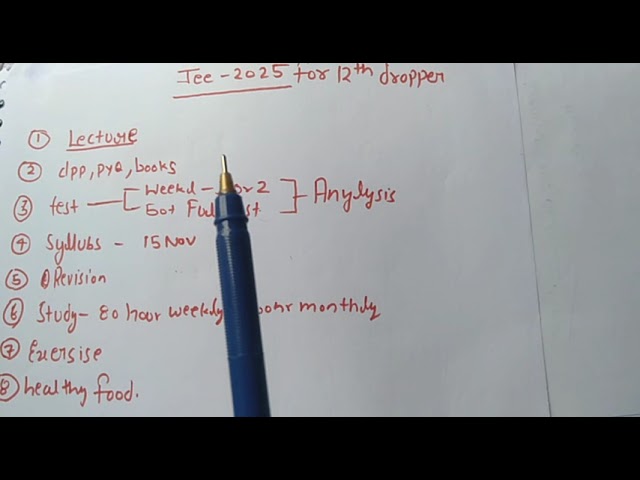 Jee - 2025 for 12th dropper
① Lecture
② dpp, pyQ, books
③ test — Weekd - or 2
50+ Full st } Anylysis
④ Syllubs - 15 Nov
⑤ Revision
⑥ Study - 80 hour weekly 00hr monthly
⑦ Exersise
⑧ healthy food.